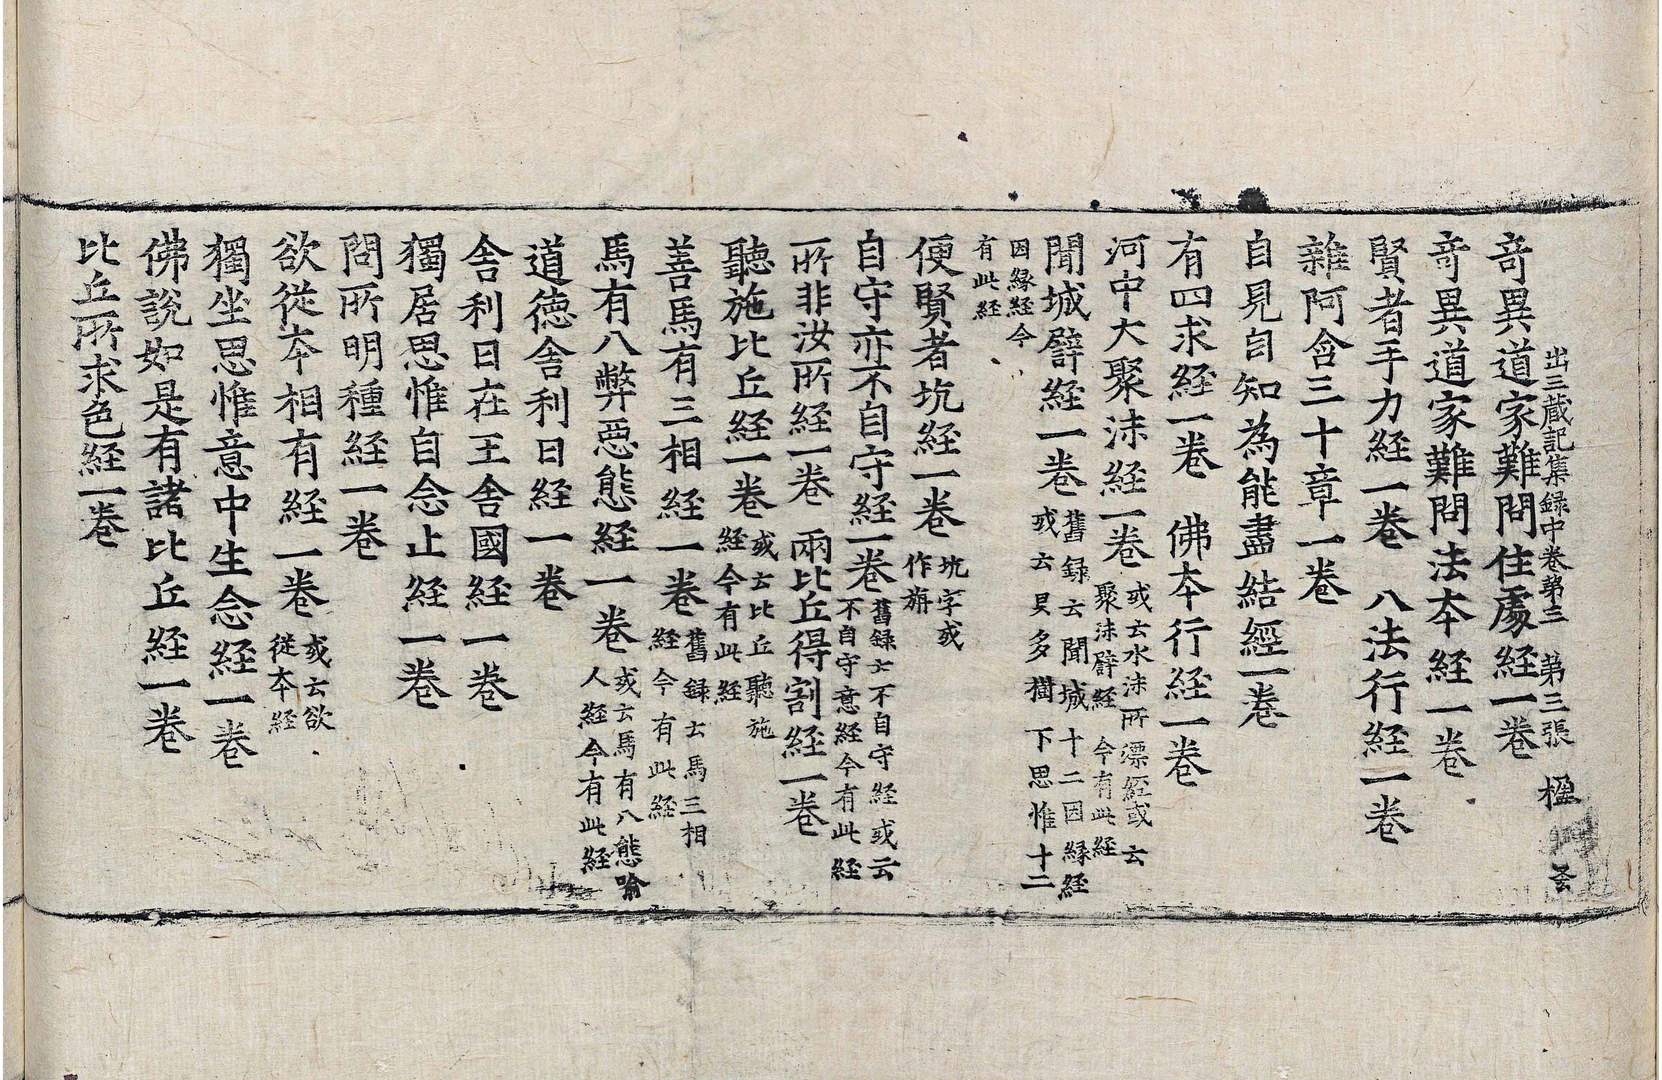 出三蔵記集録中巻第三 第三張 楹
奇異道家難問住處経一巻
奇異道家難問法本経一巻
賢者手力経一巻 八法行経一巻
雜阿含三十章一巻
自見自知為能盡結經一巻
有四求経一巻 佛本行経一巻
河中大聚沫経一巻 或云水沫所漂経或云
聚沫譬経 今有此経
聞城譬経一巻 舊録云聞城十二因縁経
或云貝多樹下思惟十二
因縁経今
有此経
便賢者坑経一巻 坑字或
作旃
自守亦不自守経一巻 舊録云不自守経或云
不自守意経今有此経
所非汝所経一巻 兩比丘得割経一巻
聽施比丘経一巻 或云比丘聽施
経今有此経
善馬有三相経一巻 舊録云馬三相
経今有此経
馬有八弊惡態経一巻 或云馬有八態喻
人経今有此経
道德舍利日経一巻
舍利日在王舍國経一巻
獨居思惟自念止経一巻
問所明種経一巻
欲從本相有経一巻 或云欲
從本経
獨坐思惟意中生念経一巻
佛說如是有諸比丘経一巻
比丘所求色経一巻